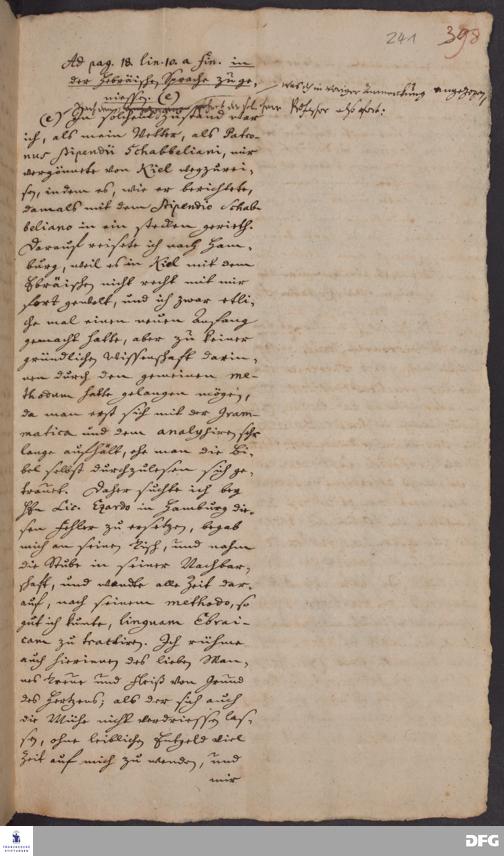 241 398
Ad pag. 18. lin. 10. a fin. in
der Hebräischen Sprache zu ge-
niessen. (e)
was ich in voriger Anmerckung angezogen,
Professor also fort:
(e) In solchem Zustand war
ich, als mein Vetter, als Patro-
nus stipendii Schabbeliani, mir
vergönnete von Kiel wegzurei-
sen, indem es, wie er berichtete,
damals mit dem Stipendio Schab-
beliano in ein stecken gerieth.
Darauf reisete ich nach Ham-
burg, weil es in Kiel mit dem
Ebräischen nicht recht mit mir
fort gewolt, und ich zwar etli-
che mal einen neuen Anfang
gemacht hatte, aber zu keiner
gründlichen Wissenschaft darin-
nen durch den gemeinen me-
thodum hatte gelangen mögen,
da man erst sich mit der Gram-
matica und dem analysiren sehr
lange aufhält, ehe man die Bi-
bel selbst durchzulesen sich ge-
trauet. Daher suchte ich bey
Hn Lic. Ezardo in Hamburg die-
sen Fehler zu ersetzen, begab
mich an seinen Tisch, und nahm
die Stube in seiner Nachbar-
schaft, und wandte alle Zeit dar-
auf, nach seinem methodo, so
gut ich kunte, linguam Ebrai-
cam zu tractiren. Ich rühme
auch hierinnen des lieben Man-
nes treue und Fleiß von Grund
des Hertzens; als der sich auch
die Mühe nicht verdriessen las-
sen, ohne leiblichen Entgeld viel
Zeit auf mich zu wenden, und
mir
FRANCKESCHE STIFTUNGEN
DFG